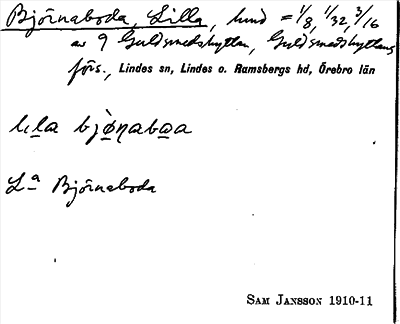 Björnaboda, Lilla, hmd = 1/8, 1/32, 3/16
av 9 Guldsmedshyttan, Guldsmedshyttans
förs., Lindes sn, Lindes o. Ramsbergs hd, Örebro län
lıla bjø̀ɳabɷa
Lª Björnaboda
SAM JANSSON 1910-11